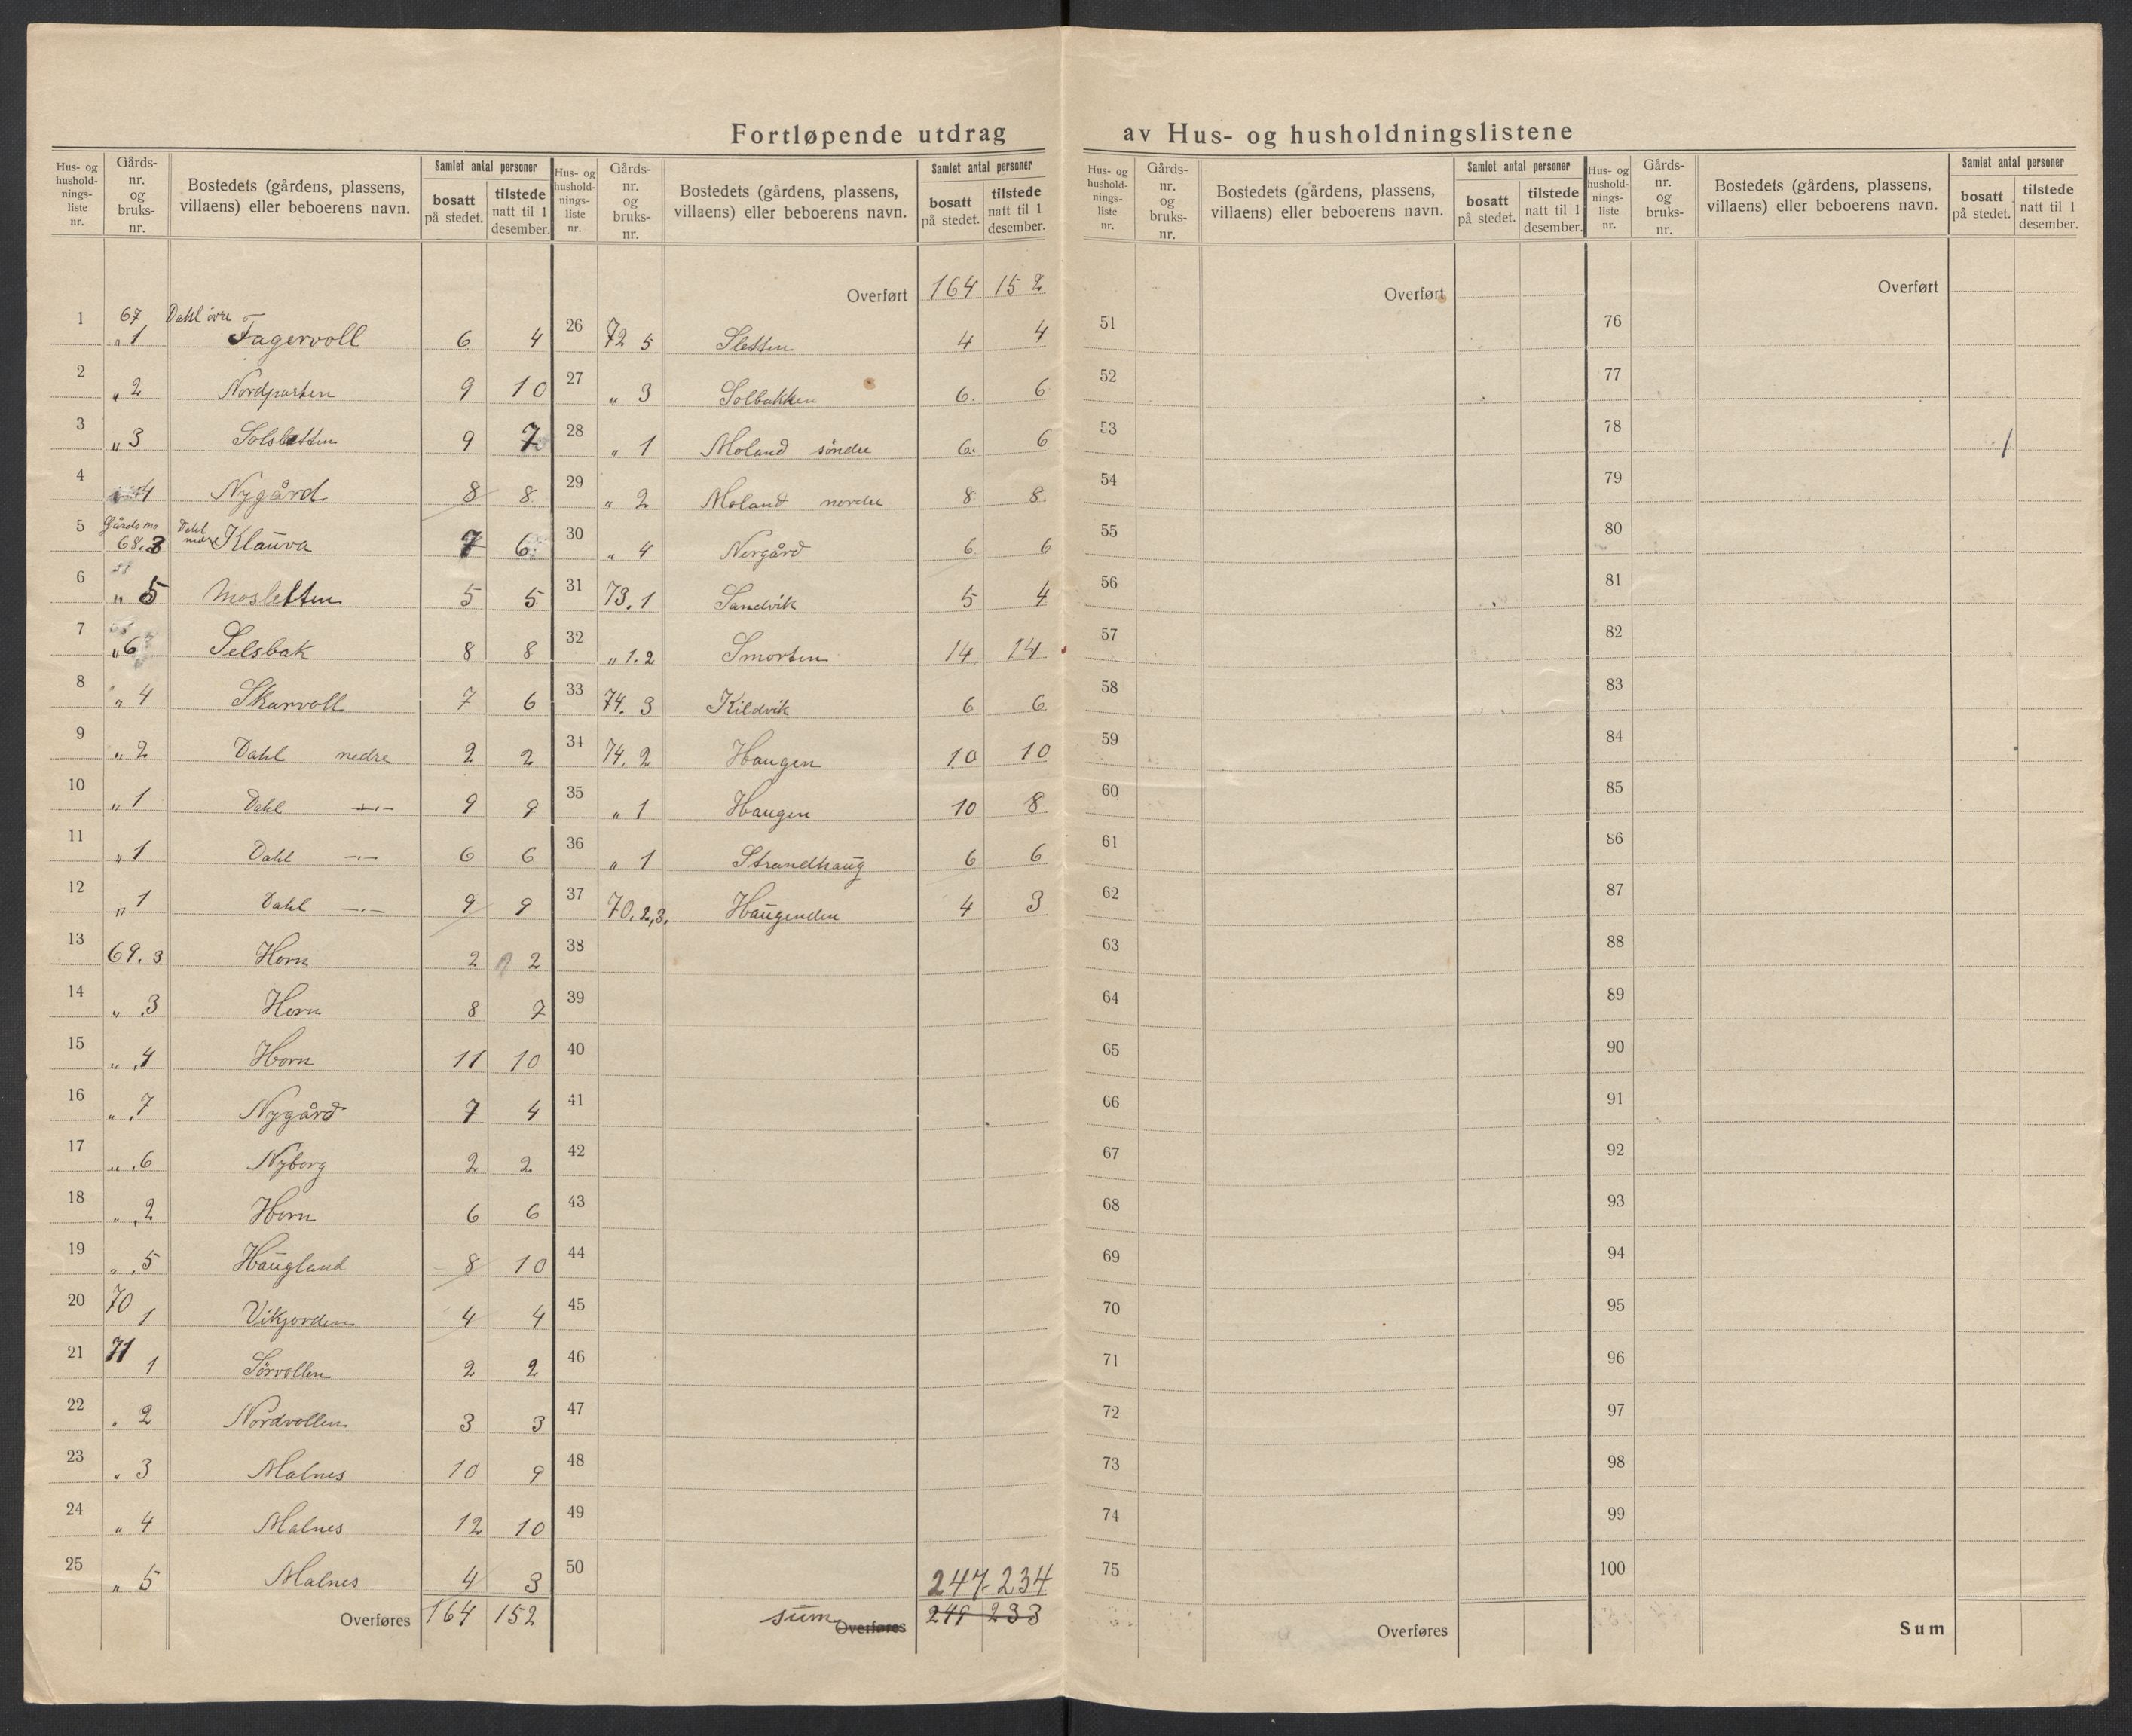 Fortløpende utdrag av Hus- og husholdningslistene
Hus- og hushold-nings-liste nr. Gårds-nr. og bruks-nr. Bostedets (gårdens, plassens, villaens) eller beboerens navn. Samlet antal personer bosatt på stedet. tilstede natt til 1 desember.
1 67 „1 Dahl övre Fagervoll 6 4
2 „2 Nordparten 9 10
3 „3 Solsletten 9 7
4 4 Nygård 8 8
5 Gårds no 68.3 Dahl nedre Klauva 7 6
6 „5 Mosletten 5 5
7 „6 Selsbak 8 8
8 „4 Skarvoll 7 6
9 „2 Dahl nedre 2 2
10 „1 Dahl —„— 9 9
11 „1 Dahl —„— 6 6
12 „1 Dahl —„— 9 9
13 69.3 Horn 2 2
14 „ 3 Horn 8 7
15 „ 4 Horn 11 10
16 „ 7 Nygård 7 4
17 „ 6 Nyborg 2 2
18 „ 2 Horn 6 6
19 „ 5 Haugland 8 10
20 70 1 Vikjorden 4 4
21 71 1 Sörvollen 2 2
22 „ 2 Nordvollen 3 3
23 „ 3 Malnes 10 9
24 „ 4 Malnes 12 10
25 „ 5 Malnes 4 3
Overføres 164 152
Hus- og hushold-nings-liste nr. Gårds-nr. og bruks-nr. Bostedets (gårdens, plassens, villaens) eller beboerens navn. Samlet antal personer bosatt på stedet. tilstede natt til 1 desember.
Overført 164 152
26 72 5 Sletten 4 4
27 „ 3 Solbakken 6 6
28 „ 1 Moland söndre 6 6
29 „ 2 Moland nordre 8 8
30 „ 4 Norgård 6 6
31 73.1 Sandvik 5 4
32 „ 1.2 Smorten 14 14
33 74.3 Kildvik 6 6
34 74.2 Haugen 10 10
35 „ 1 Haugen 10 8
36 „ 1 Strandhaug 6 6
37 70.2,3. Haugenden 4 3
38
39
40
41
42
43
44
45
46
47
48
49
50 247 234
sum Overføres 249 233
Hus- og hushold-nings-liste nr. Gårds-nr. og bruks-nr. Bostedets (gårdens, plassens, villaens) eller beboerens navn. Samlet antal personer bosatt på stedet. tilstede natt til 1 desember.
Overført
51
52
53
54
55
56
57
58
59
60
61
62
63
64
65
66
67
68
69
70
71
72
73
74
75
Overføres
Hus- og hushold-nings-liste nr. Gårds-nr. og bruks-nr. Bostedets (gårdens, plassens, villaens) eller beboerens navn. Samlet antal personer bosatt på stedet. tilstede natt til 1 desember.
Overført
76
77
78
79
80
81
82
83
84
85
86
87
88
89
90
91
92
93
94
95
96
97
98
99
100
Sum